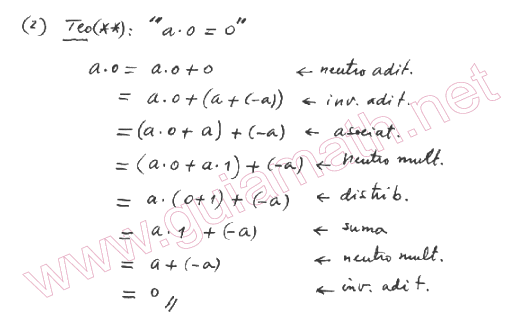 (2) Teo(**): "a·0 = 0"
a·0 = a·0+0 ← neutro adit.
= a·0+(a+(-a)) ← inv. adit.
=(a·0+a)+(-a) ← asociat.
=(a·0+a·1)+(-a) ← neutro mult.
= a·(0+1)+(-a) ← distrib.
= a·1 +(-a) ← suma
= a+(-a) ← neutro mult.
= 0 // ← inv. adit.
www.guiamath.net